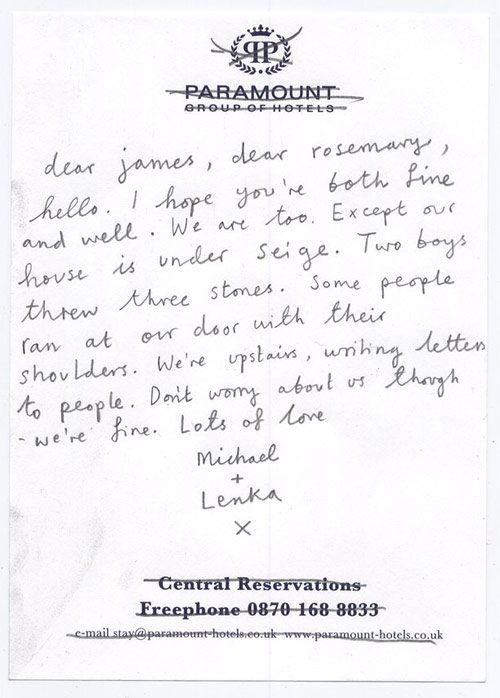 PP
PARAMOUNT
GROUP OF HOTELS
dear james, dear rosemary,
hello. I hope you're both fine
and well. We are too. Except our
house is under seige. Two boys
threw three stones. Some people
ran at our door with their
shoulders. We're upstairs, writing letters
to people. Don't worry about us though
- we're fine. Lots of love
Michael
+
Lenka
X
Central Reservations
Freephone 0870 168 8833
e-mail stay@paramount-hotels.co.uk www.paramount-hotels.co.uk